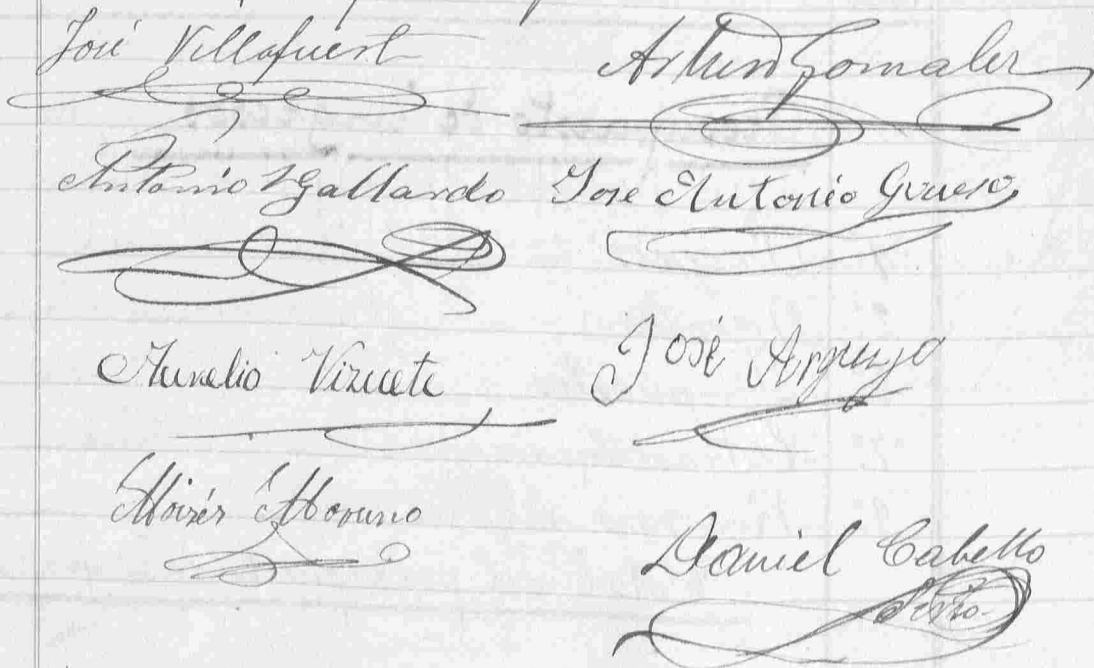 José Villafuert
Arturo Gomaler
Antonio Gallardo
Jose Antonio Grueso
Aurelio Vizuete
José Arguyo
Moisés Moruno
Daniel Cabello
Srio.